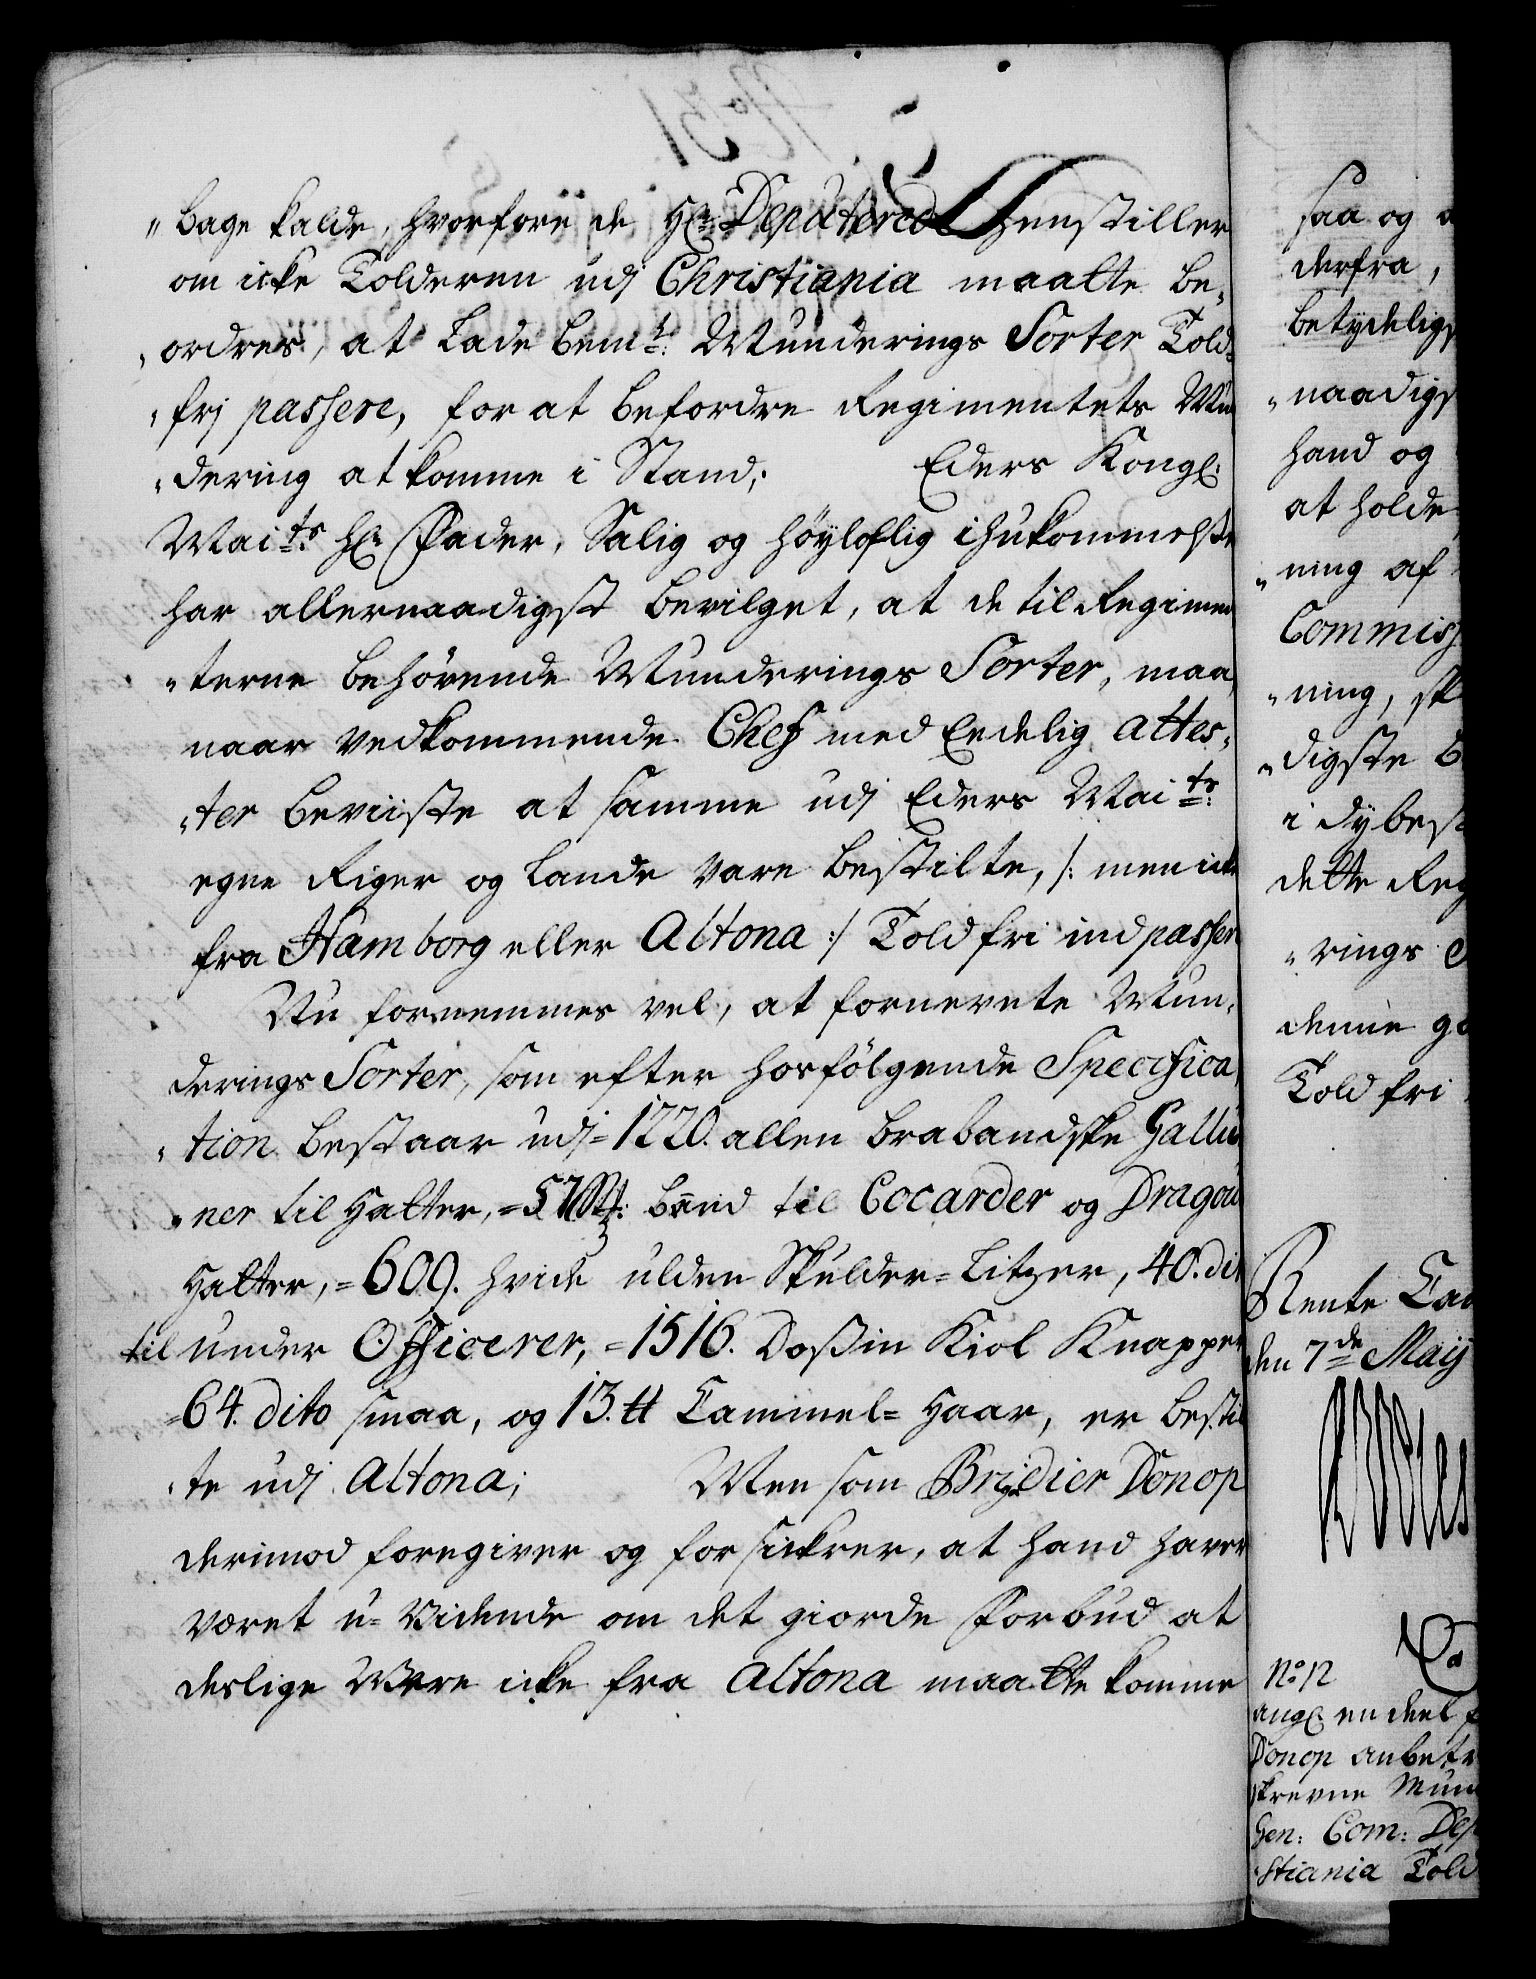 "bage kalde, hvorfore de Hr: Deputerede henstiller
om icke Tolderen udj Christiania maatte be„
„ordres, at lade bemte: Munderings Sorter Told„
„frj passere, for at befordre Regimentets Mun
„dering at komme i Stand; Eders Kongl:
Maits Hr: Fader, Salig og Høyloflig ihukommelse
har allernaadigst bevilget, at de til Regimen
„terne behørende Munderings Sorter, maa,
naar vedkommende Chef med Eedelig attes„
„ter beviiste at samme udj Eders Maits:
egne Riger og Lande vare bestilte, /: men icke
fra Hamborg eller Altona :/ Toldfri indpassere
Nu fornemmes vel, at fornevnte Mun„
derings Sorter, som efter hosfølgende Specifica„
„tion bestaar udj = 1220. allen brabandske Gallu
„ner til Hatter, = 570 st: baand til Cocarder og Dragou
Hatter, = 609. hvide ulden Skulder = Litzer, 40. dito
til under Officerer, = 1516. Dossin Kiol Knapper
= 64. dito smaa, og 13. ℔ Cammel = Haar, er bestil
„te udj Altona; Men som Brigadier Donop
derimod foregiver og forsickrer, at hand haver
været u = vidende om det giorde Forbud at
deslige Vare icke fra Altona maatte komme
saa og
derfra,
betydeligs
„naadigs
hand og
at holde
„ning af
Commiss
„ning, sk
„digste b
i dybest
dette Reg
„rings S
denne ga
Told fri
Rente Cam
den 7de Maij
No 12
angl: en deel f
Donop anbetr
skrevne Mun
Gen: Com: Dep
„stiania Told
No 31